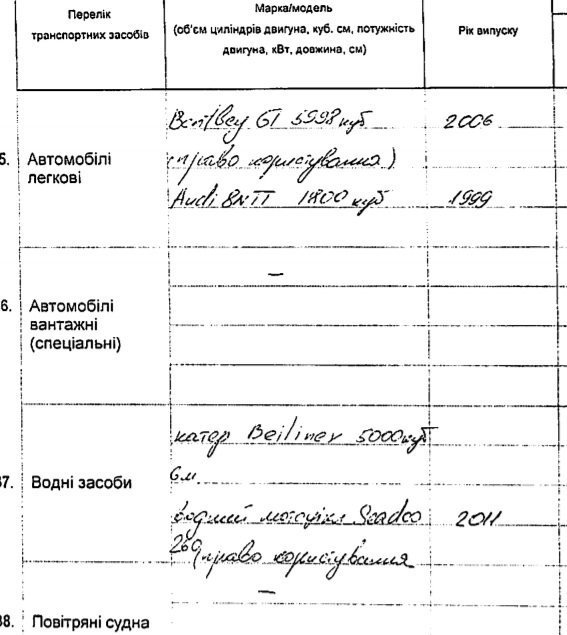 Перелік
транспортних засобів
Марка/модель
(об'єм циліндрів двигуна, куб. см, потужність
двигуна, кВт, довжина, см)
Рік випуску
5. Автомобілі
легкові
Bentley GT 5998 куб 2006
(право користування)
Audi 8N TT 1800 куб 1999
6. Автомобілі
вантажні
(спеціальні)
–
37. Водні засоби
катер Beiliner 5000 куб
6 м
водний мотоцикл Seadoo 2011
260 право користування
38. Повітряні судна
–